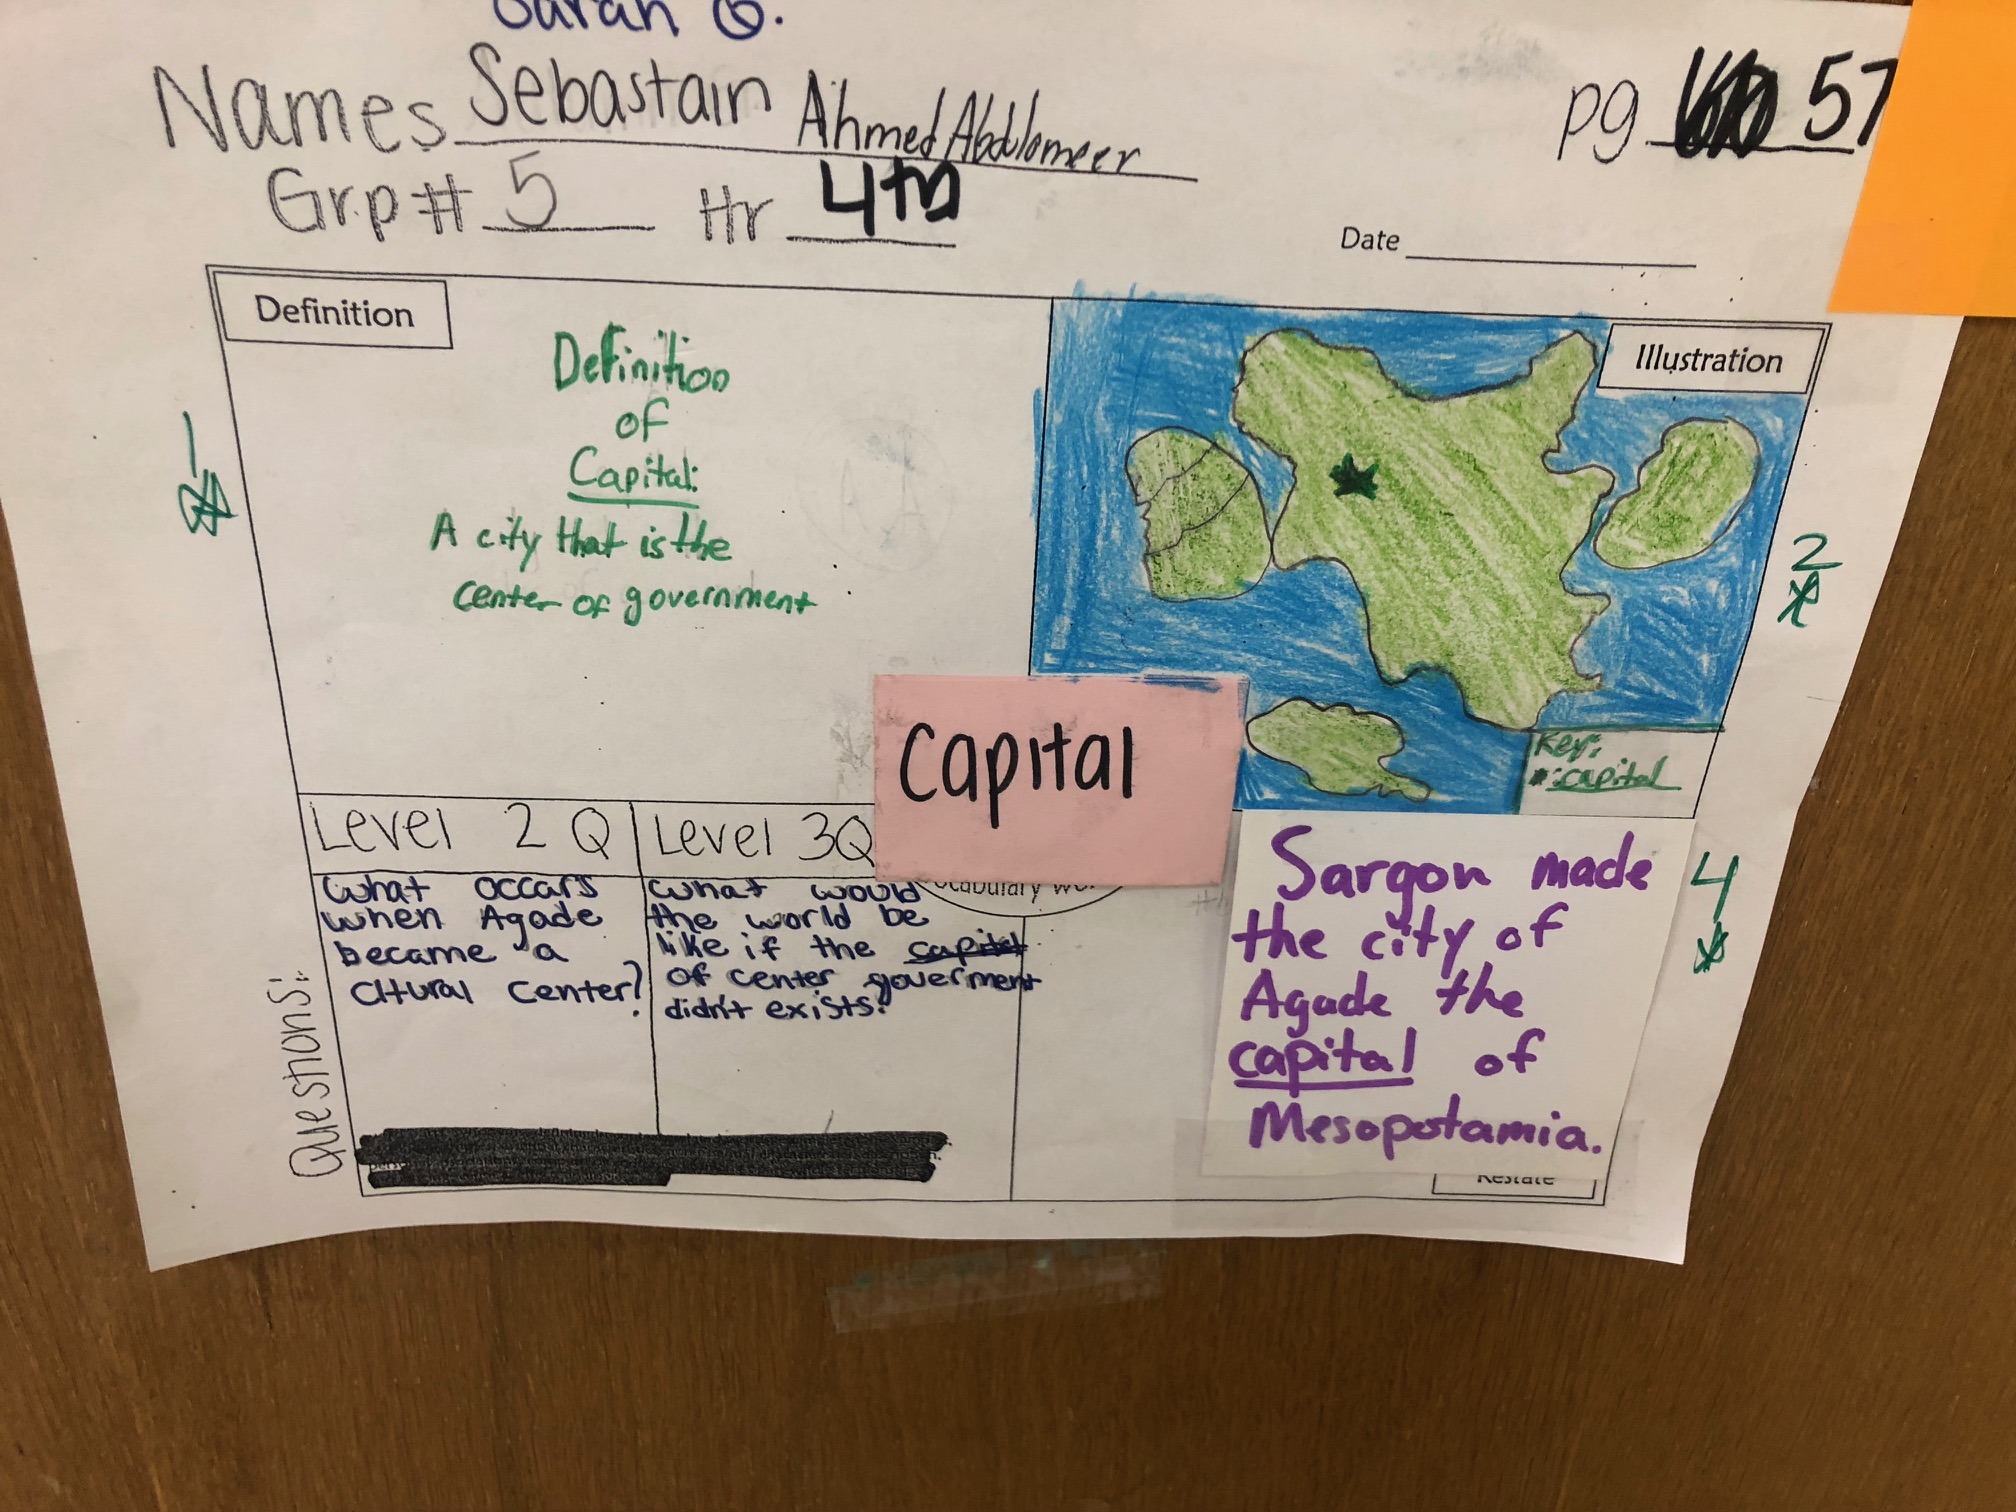 Sarah G.
Names Sebastain Ahmed Abdulameer
pg 57
Grp # 5 Hr 4th
Date
Definition
Definition
of
Capital:
A city that is the
center of government
1
Illustration
2
Key:
: capital
Capital
Level 2 Q
What occars
when Agade
became a
cltural center?
Level 3Q
what would
the world be
like if the capital
of center goverment
didn't exists?
Questions:
Sargon made
the city of
Agade the
capital of
Mesopotamia.
4
Restate